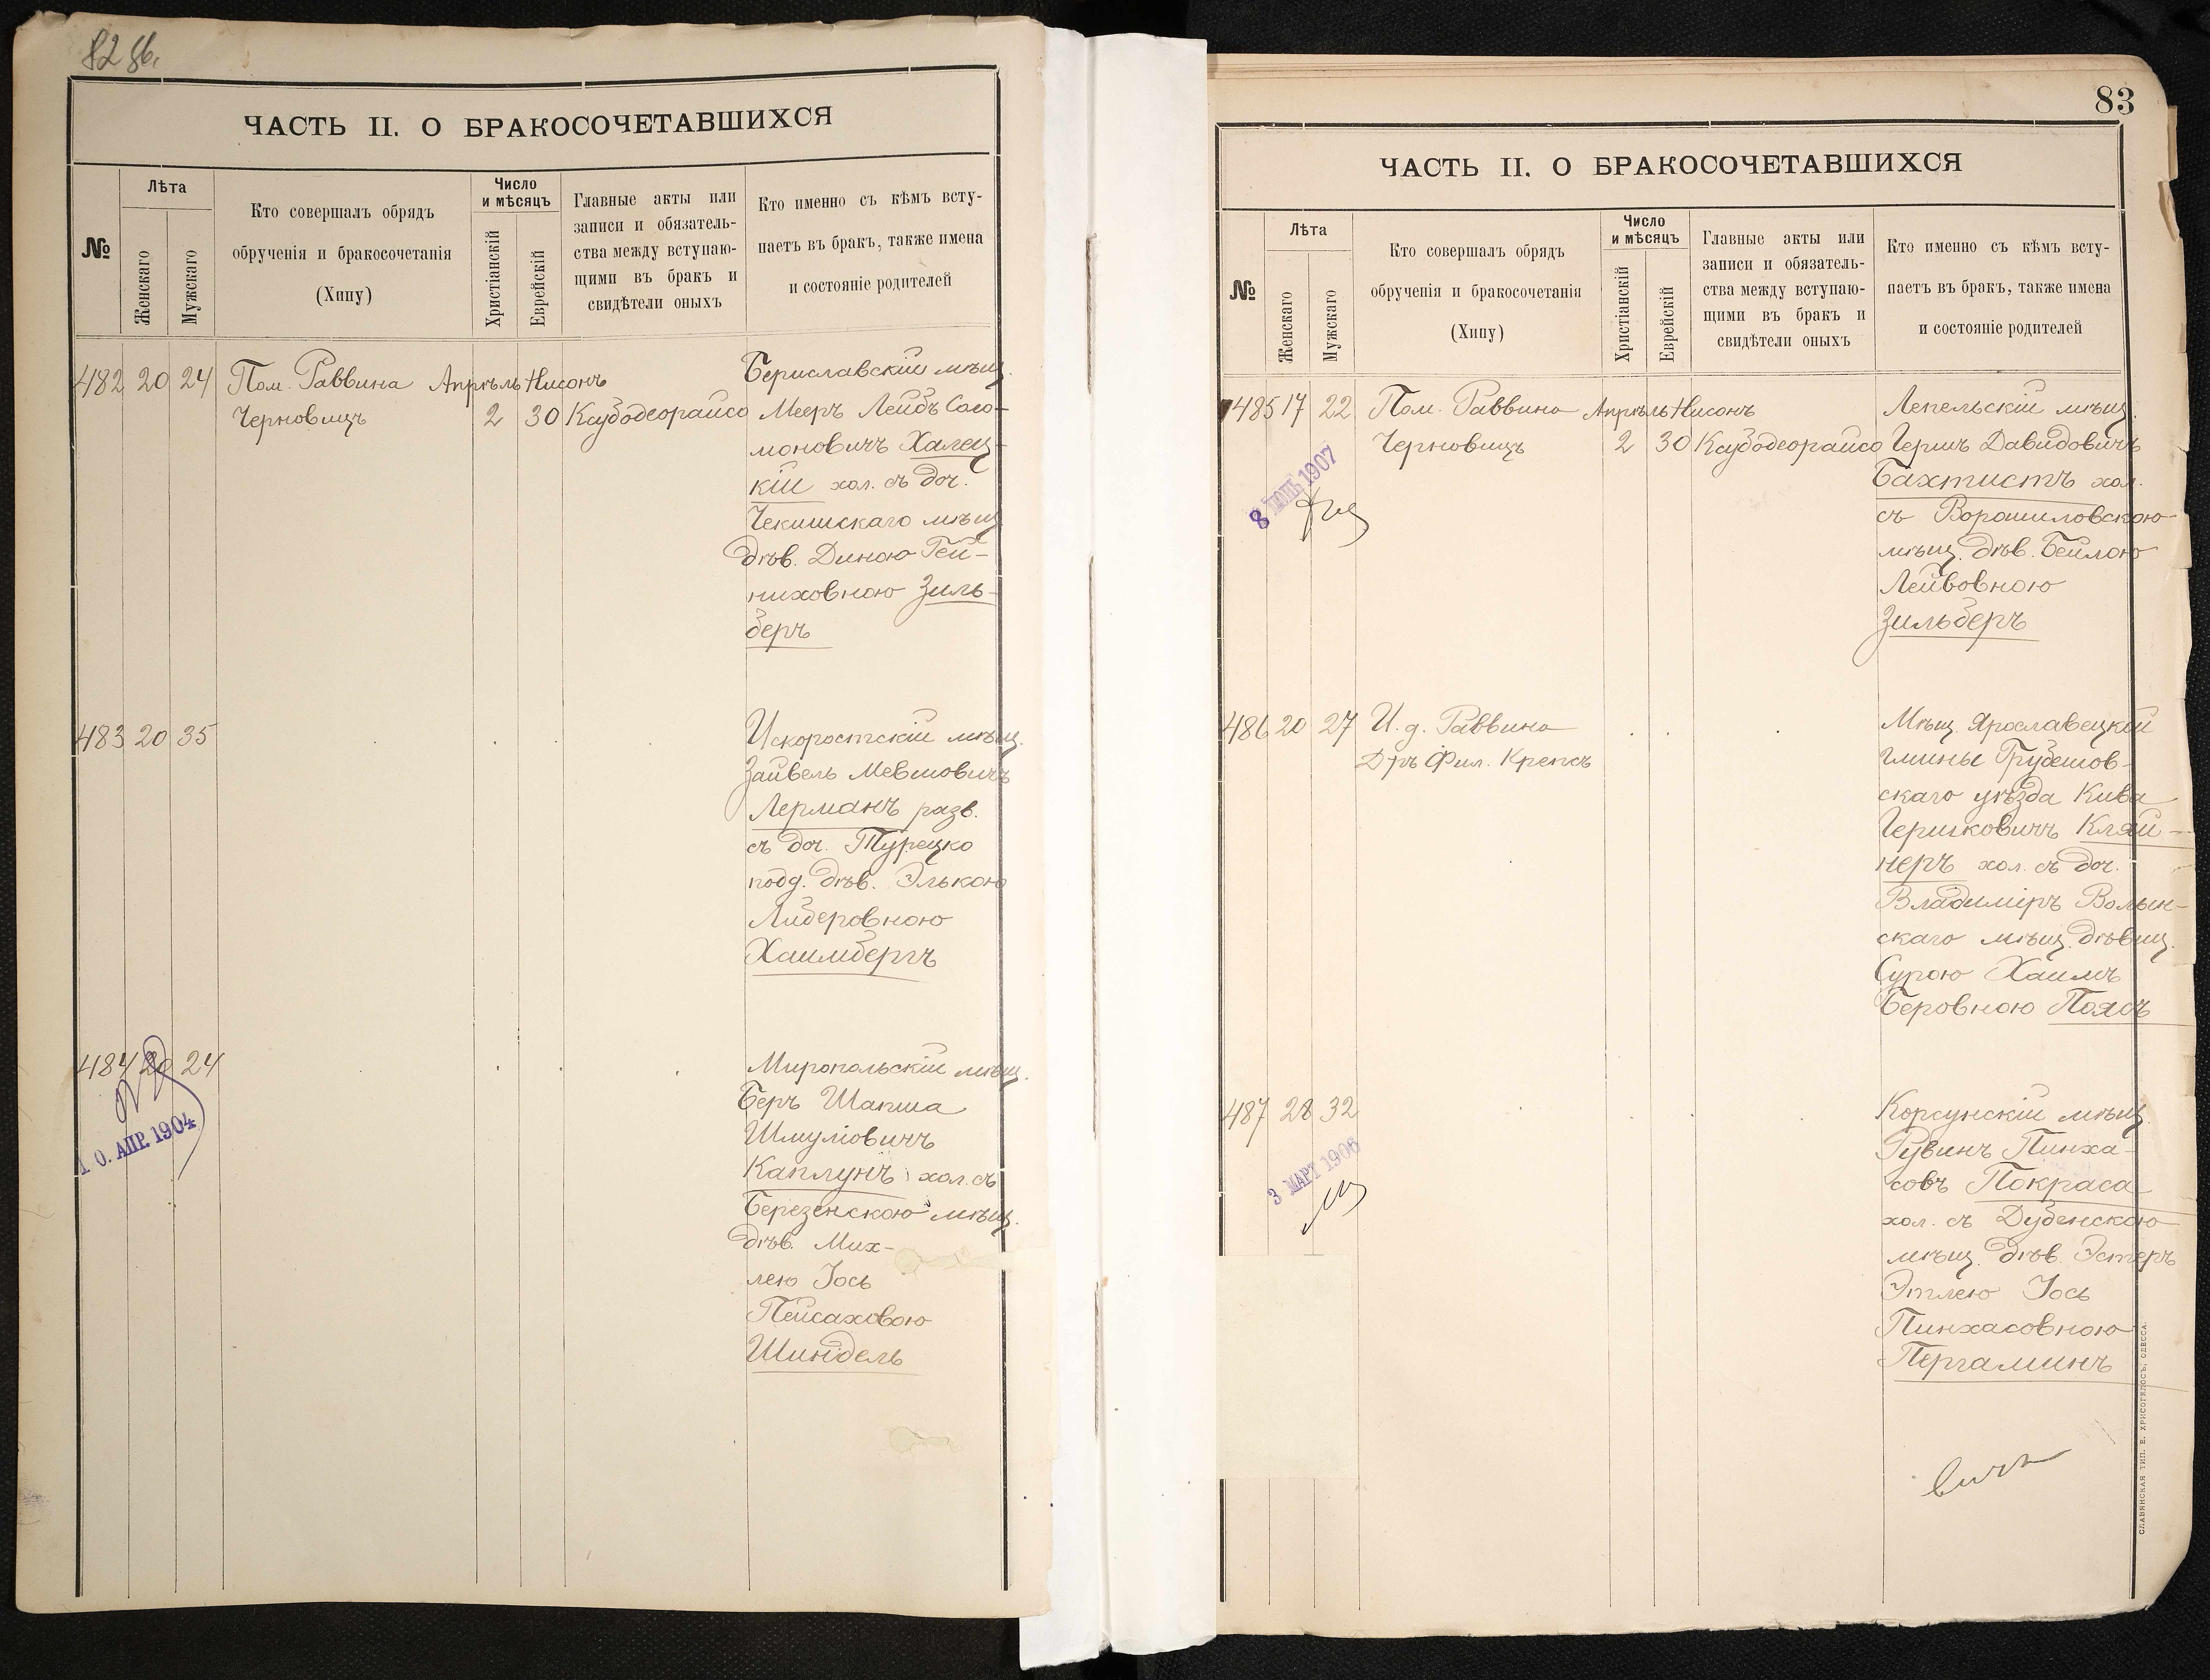 82 об.
ЧАСТЬ II. О БРАКОСОЧЕТАВШИХСЯ
№
Лѣта
Женскаго
Мужскаго
Кто совершалъ обрядъ
обрученія и бракосочетанія
(Хипу)
Число
и мѣсяцъ
Христіанскій
Еврейскій
Главные акты или
записи и обязатель-
ства между вступаю-
щими въ бракъ и
свидѣтели оныхъ
Кто именно съ кѣмъ всту-
паетъ въ бракъ, также имена
и состояніе родителей
482 20 24 Пом. Раввина Апрѣль Нисонъ
Черновицъ 2 30 Ксубодеорайсо
Бериславскій мѣщ.
Мееръ Лейбъ Соло-
моновичъ Халец-
кій хол. съ доч.
Чекишскаго мѣщ.
дѣв. Диною Гей-
ниховною Зиль-
беръ
483 20 35
Искоростскій мѣщ.
Зайвель Мевшовичъ
Лерманъ разв.
съ доч. Турецко
подд. дѣв. Элькою
Лидеровною
Хаимбергъ
484 20 24
10. АПР. 1904
Миропольскій мѣщ.
Беръ Шапша
Шмуліовичъ
Каплунъ хол. съ
Березенскою мѣщ.
дѣв. Мих-
лею Іось
Пейсаховою
Шиндель
83
ЧАСТЬ II. О БРАКОСОЧЕТАВШИХСЯ
№
Лѣта
Женскаго
Мужскаго
Кто совершалъ обрядъ
обрученія и бракосочетанія
(Хипу)
Число
и мѣсяцъ
Христіанскій
Еврейскій
Главные акты или
записи и обязатель-
ства между вступаю-
щими въ бракъ и
свидѣтели оныхъ
Кто именно съ кѣмъ всту-
паетъ въ бракъ, также имена
и состояніе родителей
485 17 22 Пом. Раввина Апрѣль Нисонъ
Черновицъ 2 30 Ксубодеорайсо
8 1907
Лепельскій мѣщ.
Гершъ Давидовичъ
Бахтистъ хол.
съ Ворошиловскою
мѣщ. дѣв. Бейлою
Лейбовною
Зильберъ
486 20 27 И. д. Раввина
Дръ Фил. Крепсъ
Мѣщ. Ярославецкой
гмины Грубешов-
скаго уѣзда Кива
Гершковичъ Кляй-
неръ хол. съ доч.
Владиміръ Волын-
скаго мѣщ. дѣвиц.
Сурою Хаимъ
Беровною Поясъ
487 28 32
3 МАРТ 1906
Корсунскій мѣщ.
Рувинъ Пинха-
совъ Покраса
хол. съ Дубенскою
мѣщ. дѣв. Эстеръ
Этлею Іось
Пинхасовною
Пергаминъ
СЛАВЯНСКАЯ ТИП. Е. ХРИСОГЕЛОСЪ, ОДЕССА.